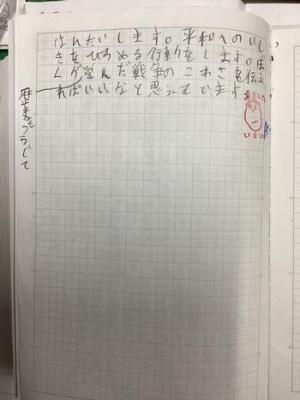 はんたいします。平和へのいし
きをひろめる行動をします。ぼ
くが学んだ戦争のこわさを伝え
ればいいなと思ってでます